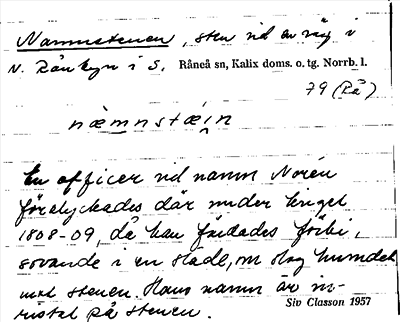 Namnstenen, sten vid en väg i
N. Rånbyn i S. Råneå sn, Kalix doms. o. tg. Norrb. l.
79 (Rå)
næmnstæin
En officer vid namn Norén
förolyckades där under kriget
1808-09, då han färdades förbi,
sovande i en släde, m slog huvudet
mot stenen. Hans namn är in-
ristat på stenen.
Siv Classon 1957